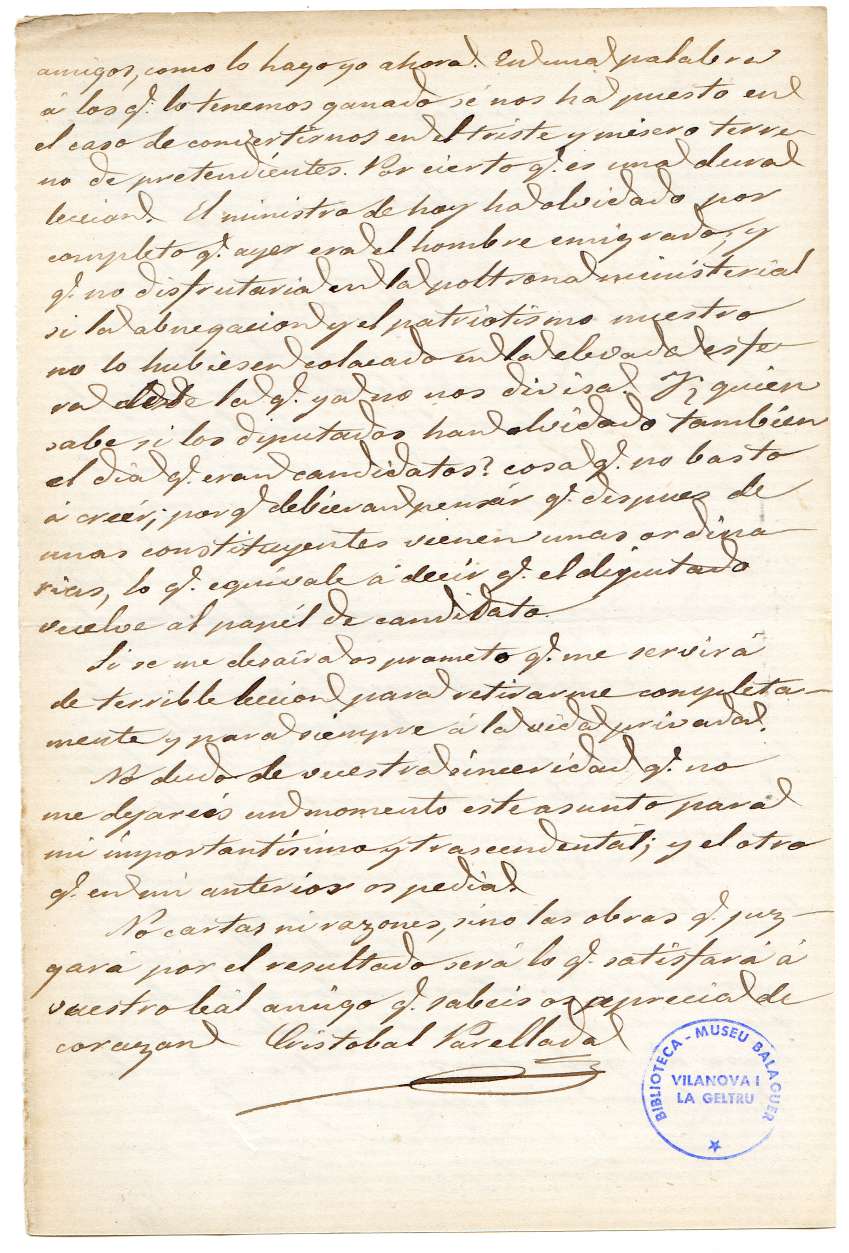 amigos, como lo hago yo ahora. En una palabra
á los q.e lo tenemos ganado sé nos ha puesto en
el caso de convertirnos en el triste y misero terre-
no de pretendientes. Por cierto q.e es una dura
leccion. El ministro de hoy ha olvidado por
completo q.e ayer era el hombre emigrado, y
q.e no disfrutaria en la poltrona ministerial
si la abnegacion y el patriotismo nuestro
no lo hubiesen colocado en la elevada esfe-
ra desde la q.e ya no nos divisa. Y quién
sabe si los diputados han olvidado también
el dia q.e eran candidatos? cosa q.e no basto
á creér; por q.e debieran pensár q.e despues de
unas constituyentes vienen unas ordina-
rias, lo q.e equivale á decir q.e el diputado
vuelve al papél de candidato.
Si se me desaira os prometo q.e me servirá
de terrible leccion para retirarme completa-
mente y para siempre á la vida privada.
No dudo de vuestra sinceridad q.e no
me dejaréis un momento este asunto para
mi importantísimo y trascendental; y el otro
q.e en mi anterior os pedia.
No cartas ni razones, sino las obras q.e juz-
gará por el resultado será lo q.e satisfará á
vuestro leál amigo q.e sabeis os aprecia de
corazon Cristobal Parellada
BIBLIOTECA - MUSEU BALAGUER
VILANOVA I
LA GELTRU